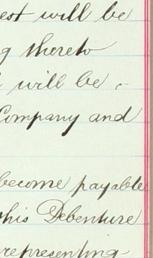 est will be
g thereto
will be
Company and
become payable
this Debenture
representing